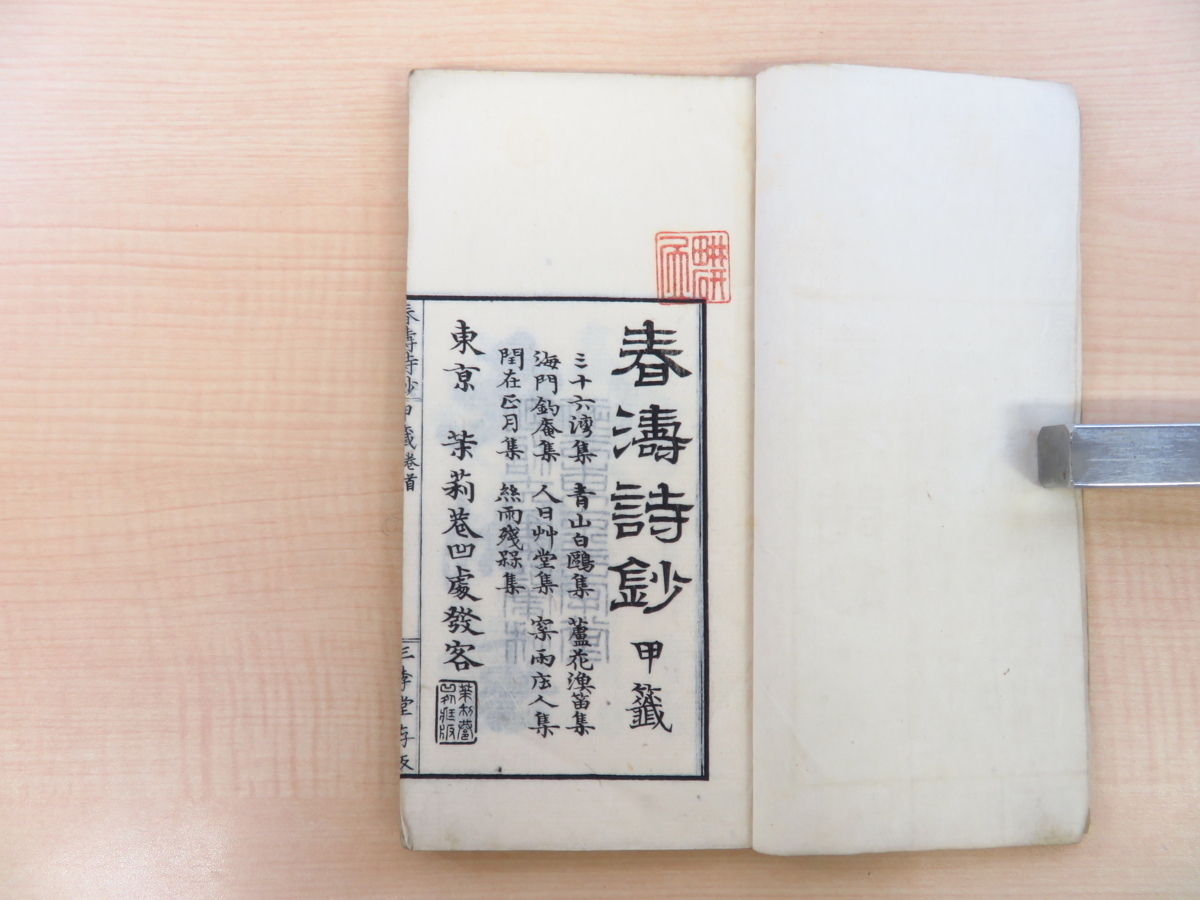 春濤詩鈔 甲籤
三十六湾集 青山白鷗集 蘆花漁笛集
海門釣庵集 人日艸堂集 窠雨庄人集
閏在正月集 絲雨殘槑集
東京 茉莉巷凹處發客
春濤詩鈔 甲籤卷首 三李堂存版